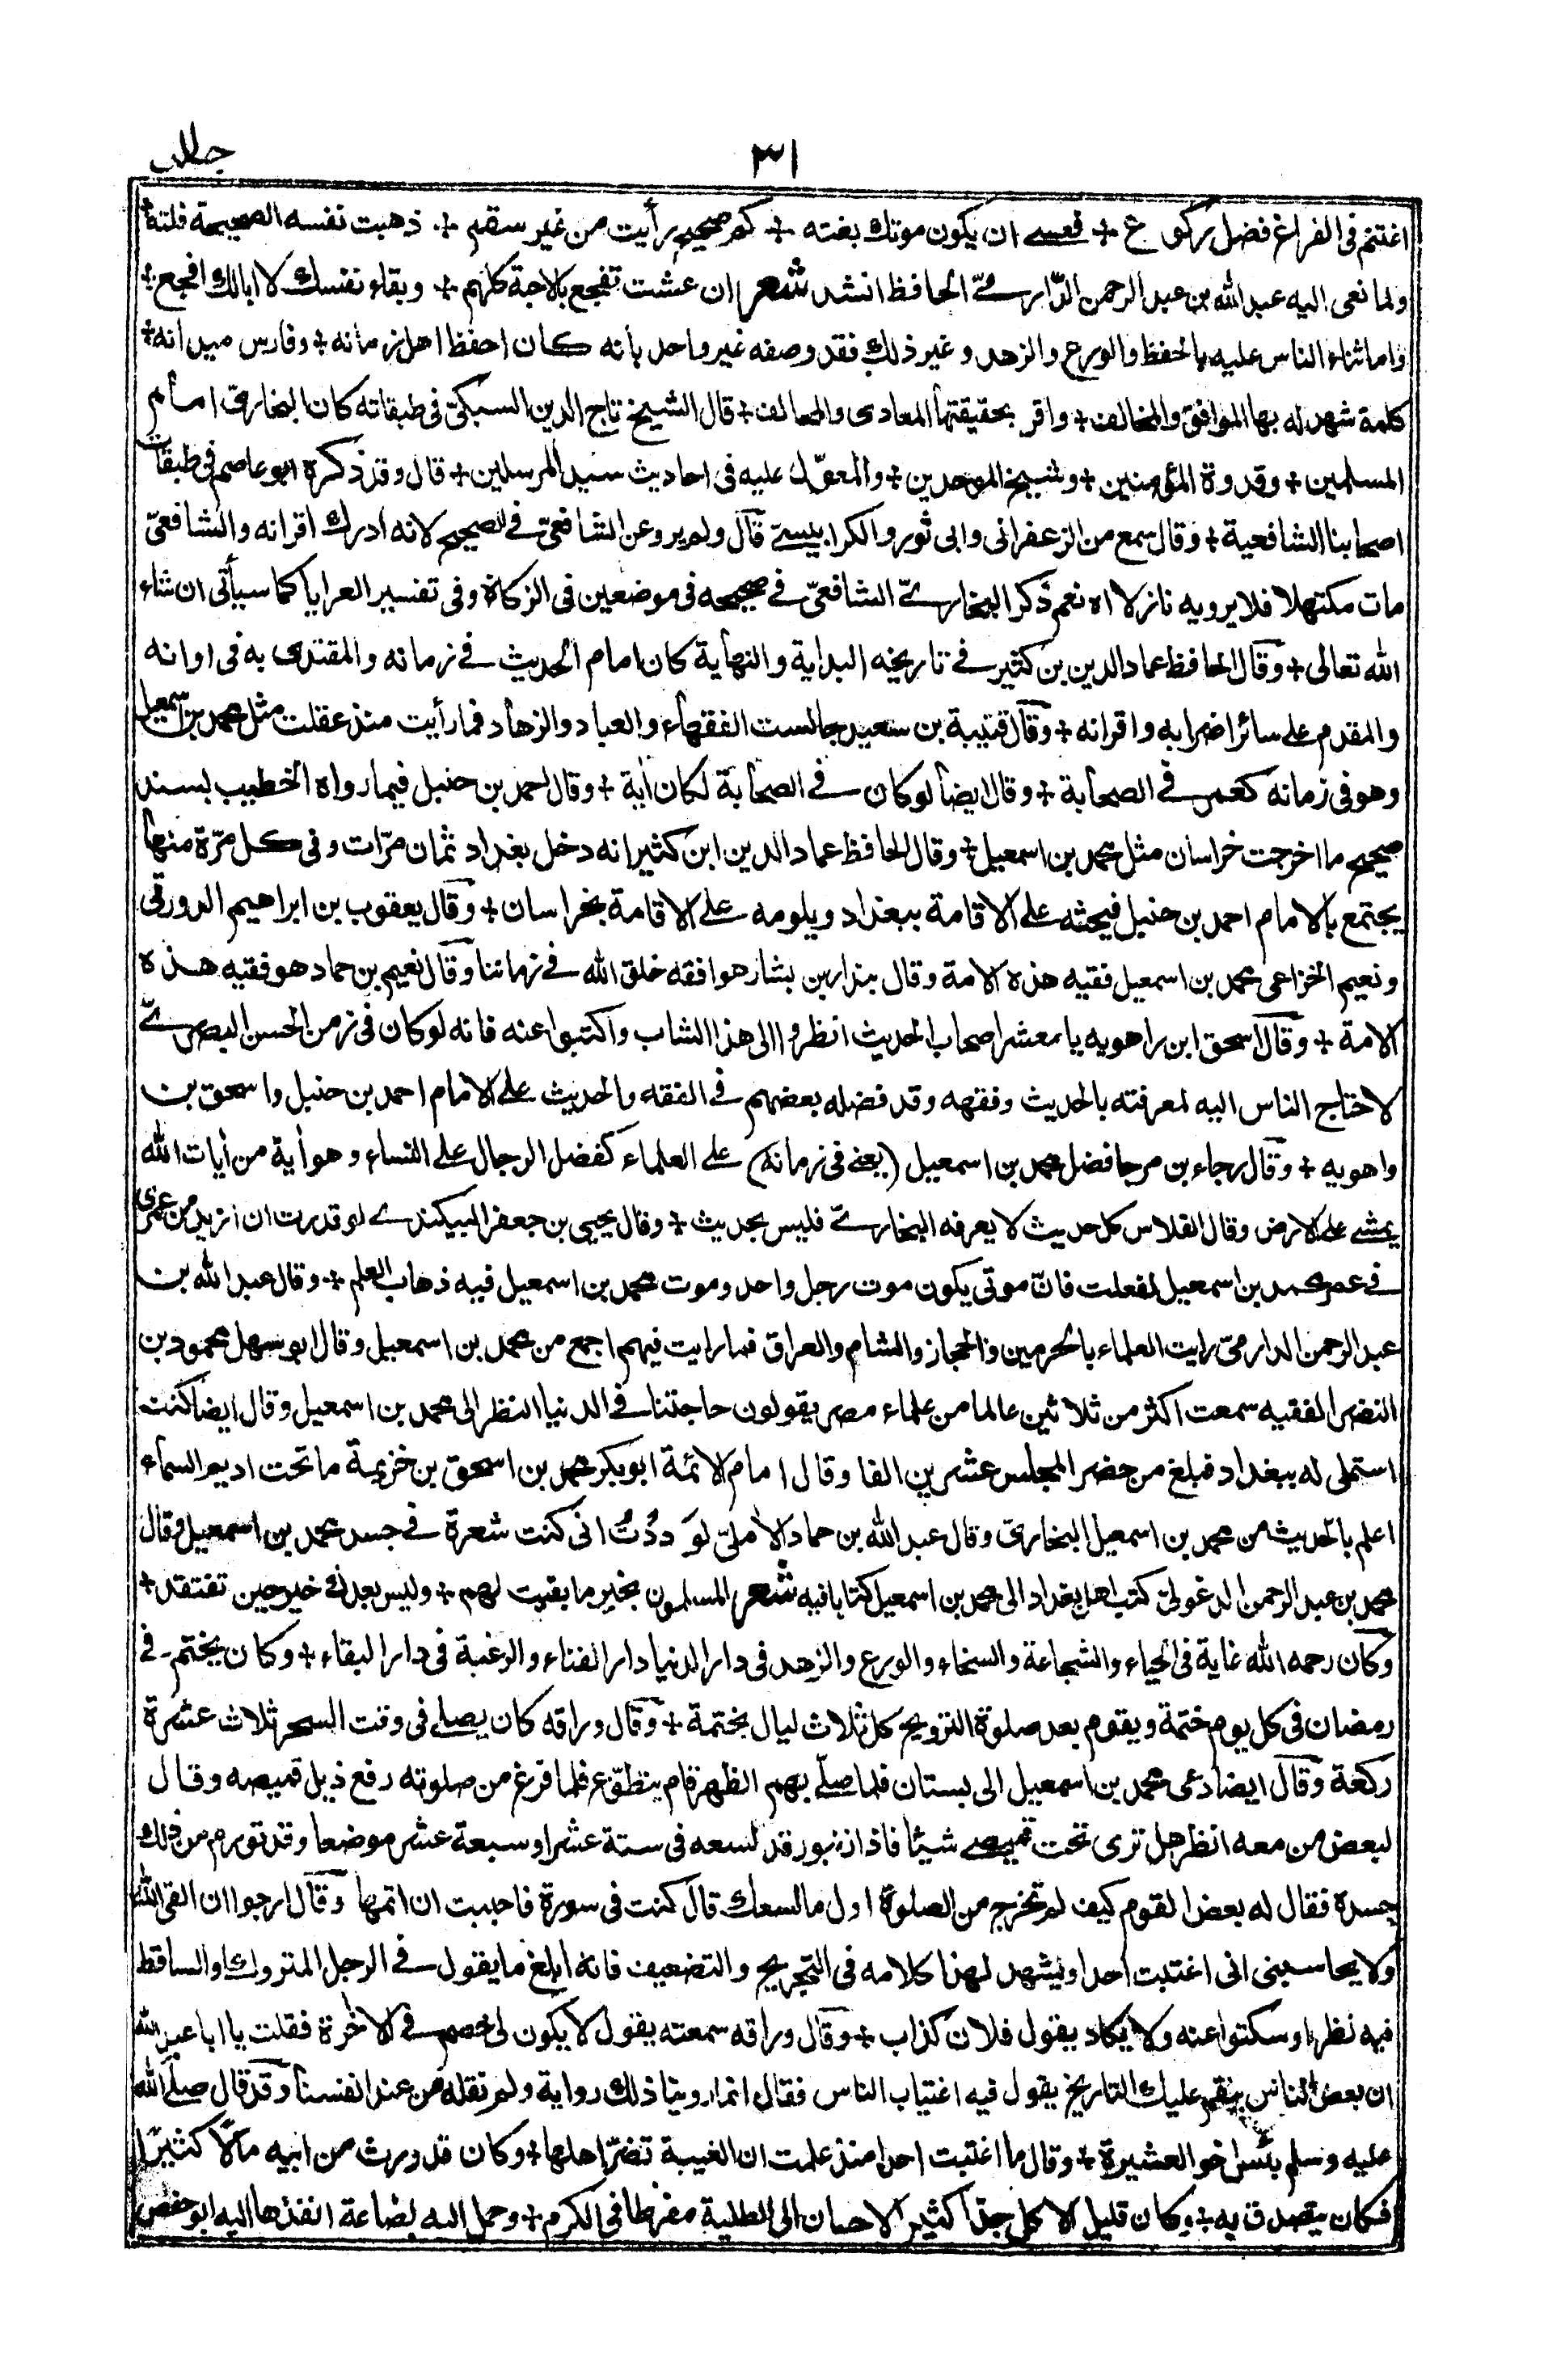 ٣١
اغتنم فى الفراغ فضل ركوع ÷ فعسى ان يكون موتك بغته ÷ كم صحيح رأيت من غير سقم ÷ ذهبت نفسه الصحيحة فلتة ÷
ولما نعى اليه عبد الله بن عبد الرحمن الدّارمىّ الحافظ انشد شعر ان عشت تفجع بالاحبة كلهم ÷ وبقاء نفسك لا ابالك افجع ÷
واما ثناء الناس عليه بالحفظ والورع والزهد وغير ذلك فقد وصفه غير واحد بانه كان احفظ اهل زمانه ÷ وفارس ميدانه ÷
كلمة شهد له بها الموافق والمخالف ÷ واقر بحقيقتها المعادى والمحالف ÷ قال الشيخ تاج الدين السبكىّ فى طبقاته كان البخارىّ امام
المسلمين ÷ وقدوة المؤمنين ÷ وشيخ الموحدين ÷ والمعوّل عليه فى احاديث سيد المرسلين ÷ قال وقد ذكره ابو عاصم فى طبقات
اصحابنا الشافعية ÷ وقال سمع من الزعفرانى وابى ثور والكرابيسىّ قال ولم يرو عن الشافعىّ فى الصحيح لانه ادرك اقرانه والشافعىّ
مات مكتهلا فلا يرويه نازلا اه نعم ذكر البخارىّ الشافعىّ فى صحيحه فى موضعين فى الزكاة وفى تفسير العرايا كما سيأتى ان شاء
الله تعالى ÷ وقال الحافظ عماد الدين بن كثير فى تاريخه البداية والنهاية كان امام الحديث فى زمانه والمقتدى به فى اوانه
والمقدم على سائر اضرابه واقرانه ÷ وقال قتيبة بن سعيد جالست الفقهاء والعباد والزهاد فما رأيت منذ عقلت مثل محمد بن اسمعيل
وهو فى زمانه كعمر فى الصحابة ÷ وقال ايضا لو كان فى الصحابة لكان أية ÷ وقال احمد بن حنبل فيما رواه الخطيب بسند
صحيح ما اخرجت خراسان مثل محمد بن اسمعيل ÷ وقال الحافظ عماد الدين ابن كثير انه دخل بغداد ثمان مرّات وفى كل مرّة منها
يجتمع بالامام احمد بن حنبل فيحثه على الاقامة ببغداد ويلومه على الاقامة بخراسان ÷ وقال يعقوب بن ابراهيم الدورقى
ونعيم الخزاعى محمد بن اسمعيل فقيه هذه الامة وقال بندار بن بشار هو افقه خلق الله فى زماننا وقال نعيم بن حماد هو فقيه هذه
الامة ÷ وقال اسحق ابن راهويه يا معشر اصحاب الحديث انظروا الى هذا الشاب واكتبوا عنه فانه لو كان فى زمن الحسن البصرىّ
لاحتاج الناس اليه لمعرفته بالحديث وفقهه وقد فضله بعضهم فى الفقه والحديث على الامام احمد بن حنبل واسحق بن
راهويه ÷ وقال رجاء بن مرجا فضل محمد بن اسمعيل (يعنى فى زمانه) على العلماء كفضل الرجال على النساء وهو أية من أيات الله
يمشى على الارض وقال الفلاس كل حديث لا يعرفه البخارىّ فليس بحديث ÷ وقال يحيى بن جعفر البيكندى لو قدرت ان ازيد من عمرى
فى عمر محمد بن اسمعيل لفعلت فانّ موتى يكون موت رجل واحد وموت محمد بن اسمعيل فيه ذهاب العلم ÷ وقال عبد الله بن
عبد الرحمن الدارمىّ رايت العلماء بالحرمين والحجاز والشام والعراق فما رايت فيهم اجمع من محمد بن اسمعيل وقال ابو سهل محمود بن
النضر الفقيه سمعت اكثر من ثلاثين عالما من علماء مصر يقولون حاجتنا فى الدنيا النظر الى محمد بن اسمعيل وقال ايضا كنت
استملى له ببغداد فبلغ من حضر المجلس عشرين الفا وقال امام الائمة ابو بكر محمد بن اسحق بن خزيمة ما تحت اديم السماء
اعلم بالحديث من محمد بن اسمعيل البخارىّ وقال عبد الله بن حماد الأملىّ لوَددْتُ انى كنت شعرة فى جسد محمد بن اسمعيل وقال
محمد بن عبد الرحمن الدغولىّ كتب اهل بغداد الى محمد بن اسمعيل كتابا فيه شعر المسلمون بخير ما بقيت لهم ÷ وليس بعدك خير حين تفتقد ÷
وكان رحمه الله غاية فى الحياء والشجاعة والسخاء والورع والزهد فى دار الدنيا دار الفناء والرغبة فى دار البقاء ÷ وكان يختم فى
رمضان فى كل يوم ختمة ويقوم بعد صلوة التروايح كل ثلاث ليال بختمة ÷ وقال وراقه كان يصلى فى وقت السحر ثلاث عشرة
ركعة وقال ايضا دعى محمد بن اسمعيل الى بستان فلما صلّى بهم الظهر قام يتطوّع فلما فرغ من صلوته رفع ذيل قميصه وقال
لبعض من معه انظر هل ترى تحت قميصى شيئا فاذا زنبور قد لسعه فى ستة عشر او سبعة عشر موضعا وقد تورم من ذلك
جسده فقال له بعض القوم كيف لم تخرج من الصلوة اول ما لسعك قال كنت فى سورة فاحببت ان اتمها وقال ارجوا ان القى الله
ولا يحاسبنى انى اغتبت احدا ويشهد لهذا كلامه فى التجريح والتضعيف فانه ابلغ ما يقول فى الرجل المتروك او الساقط
فيه نظر او سكتوا عنه ولا يكاد يقول فلان كذاب ÷ وقال وراقه سمعته يقول لا يكون لى خصم فى الاخرة فقلت يا ابا عبد الله
ان بعض الناس ينقم عليك التاريخ يقول فيه اغتياب الناس فقال انما روينا ذلك رواية ولم نقله من عند انفسنا وقد قال صلى الله
عليه وسلم بئس اخو العشيرة ÷ وقال ما اغتبت احدا منذ علمت ان الغيبة تضرّ اهلها ÷ وكان قد ورث من ابيه مالًا كثيرًا
فكان يتصدق به ÷ وكان قليل الاكل جدّا كثير الاحسان الى الطلبة مفرطا فى الكرم ÷ وحمل اليه بضاعة انفذها اليه ابو حفص